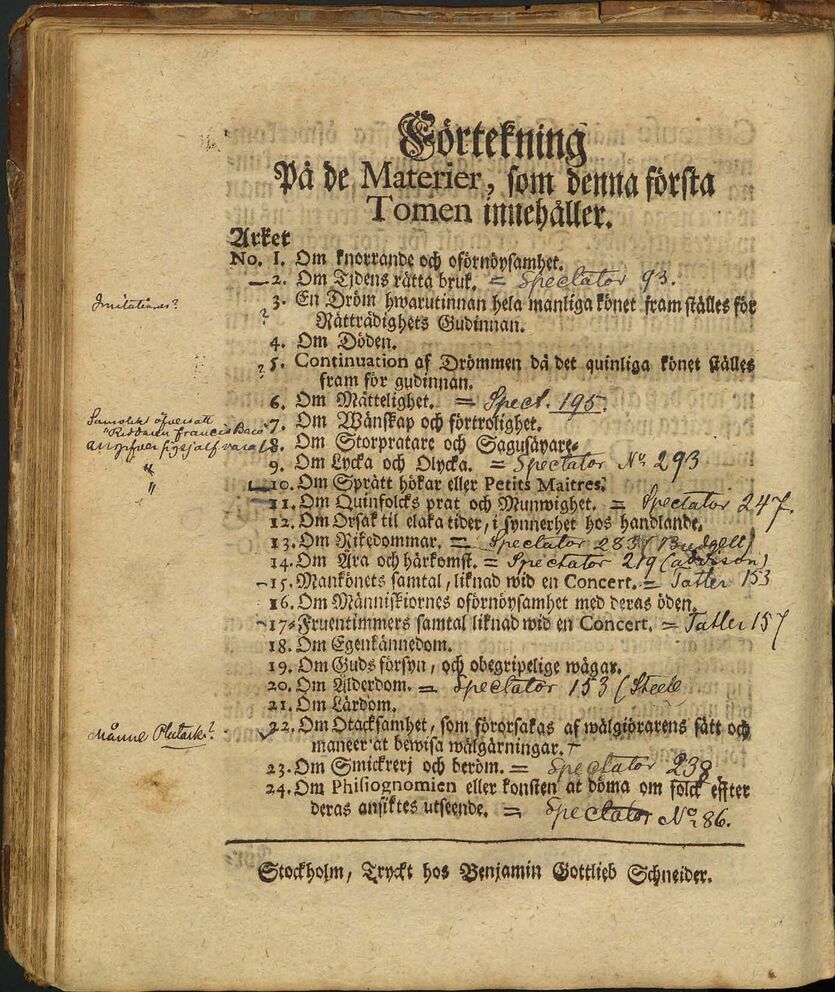 Förtekning
På de Materier, som denna första
Tomen innehåller.
Arket
No. 1. Om knorrande och oförnöysamhet.
2. Om Tjdens rätta bruk. = Spectator 93.
Imitationes?
3. En Dröm hwarutinnan hela manliga könet framställes för
? Rättrådighets Gudinnan.
4. Om Döden.
? 5. Continuation af Drömmen då det quinliga könet ställes
fram för gudinnan.
6. Om Måttelighet. = Spect. 195.
7. Om Wänskap och förtrolighet.
8. Om Storpratare och Sagusäyare.
9. Om Lycka och Olycka. = Spectator No. 293
10. Om Sprätt hökar eller Petits Maitres.
11. Om Quinfolcks prat och Munwighet. = Spectator 247.
12. Om Orsak til elaka tider, i synnerhet hos handlande.
13. Om Rikedommar. = Spectator 283 (Budgell)
14. Om Ära och härkomst. = Spectator 219 (Addison)
15. Mankönets samtal, liknad wid en Concert. = Tatler 153
16. Om Människiornes oförnöysamhet med deras öden.
17. Fruentimmers samtal liknad wid en Concert. = Tatler 157
18. Om Egenkännedom.
19. Om Guds försyn, och obegripelige wägar.
20. Om Ålderdom. = Spectator 153 (Steele
21. Om Lärdom.
Månne Plutark?
22. Om Otacksamhet, som förorsakas af wälgiörarens sätt och
maneer at bewisa wälgärningar. †
23. Om Smickrerj och beröm. = Spectator 238
24. Om Phisiognomien eller konsten at döma om folck effter
deras ansiktes utseende. = Spectator No. 86.
Stockholm, Tryckt hos Benjamin Gottlieb Schneider.